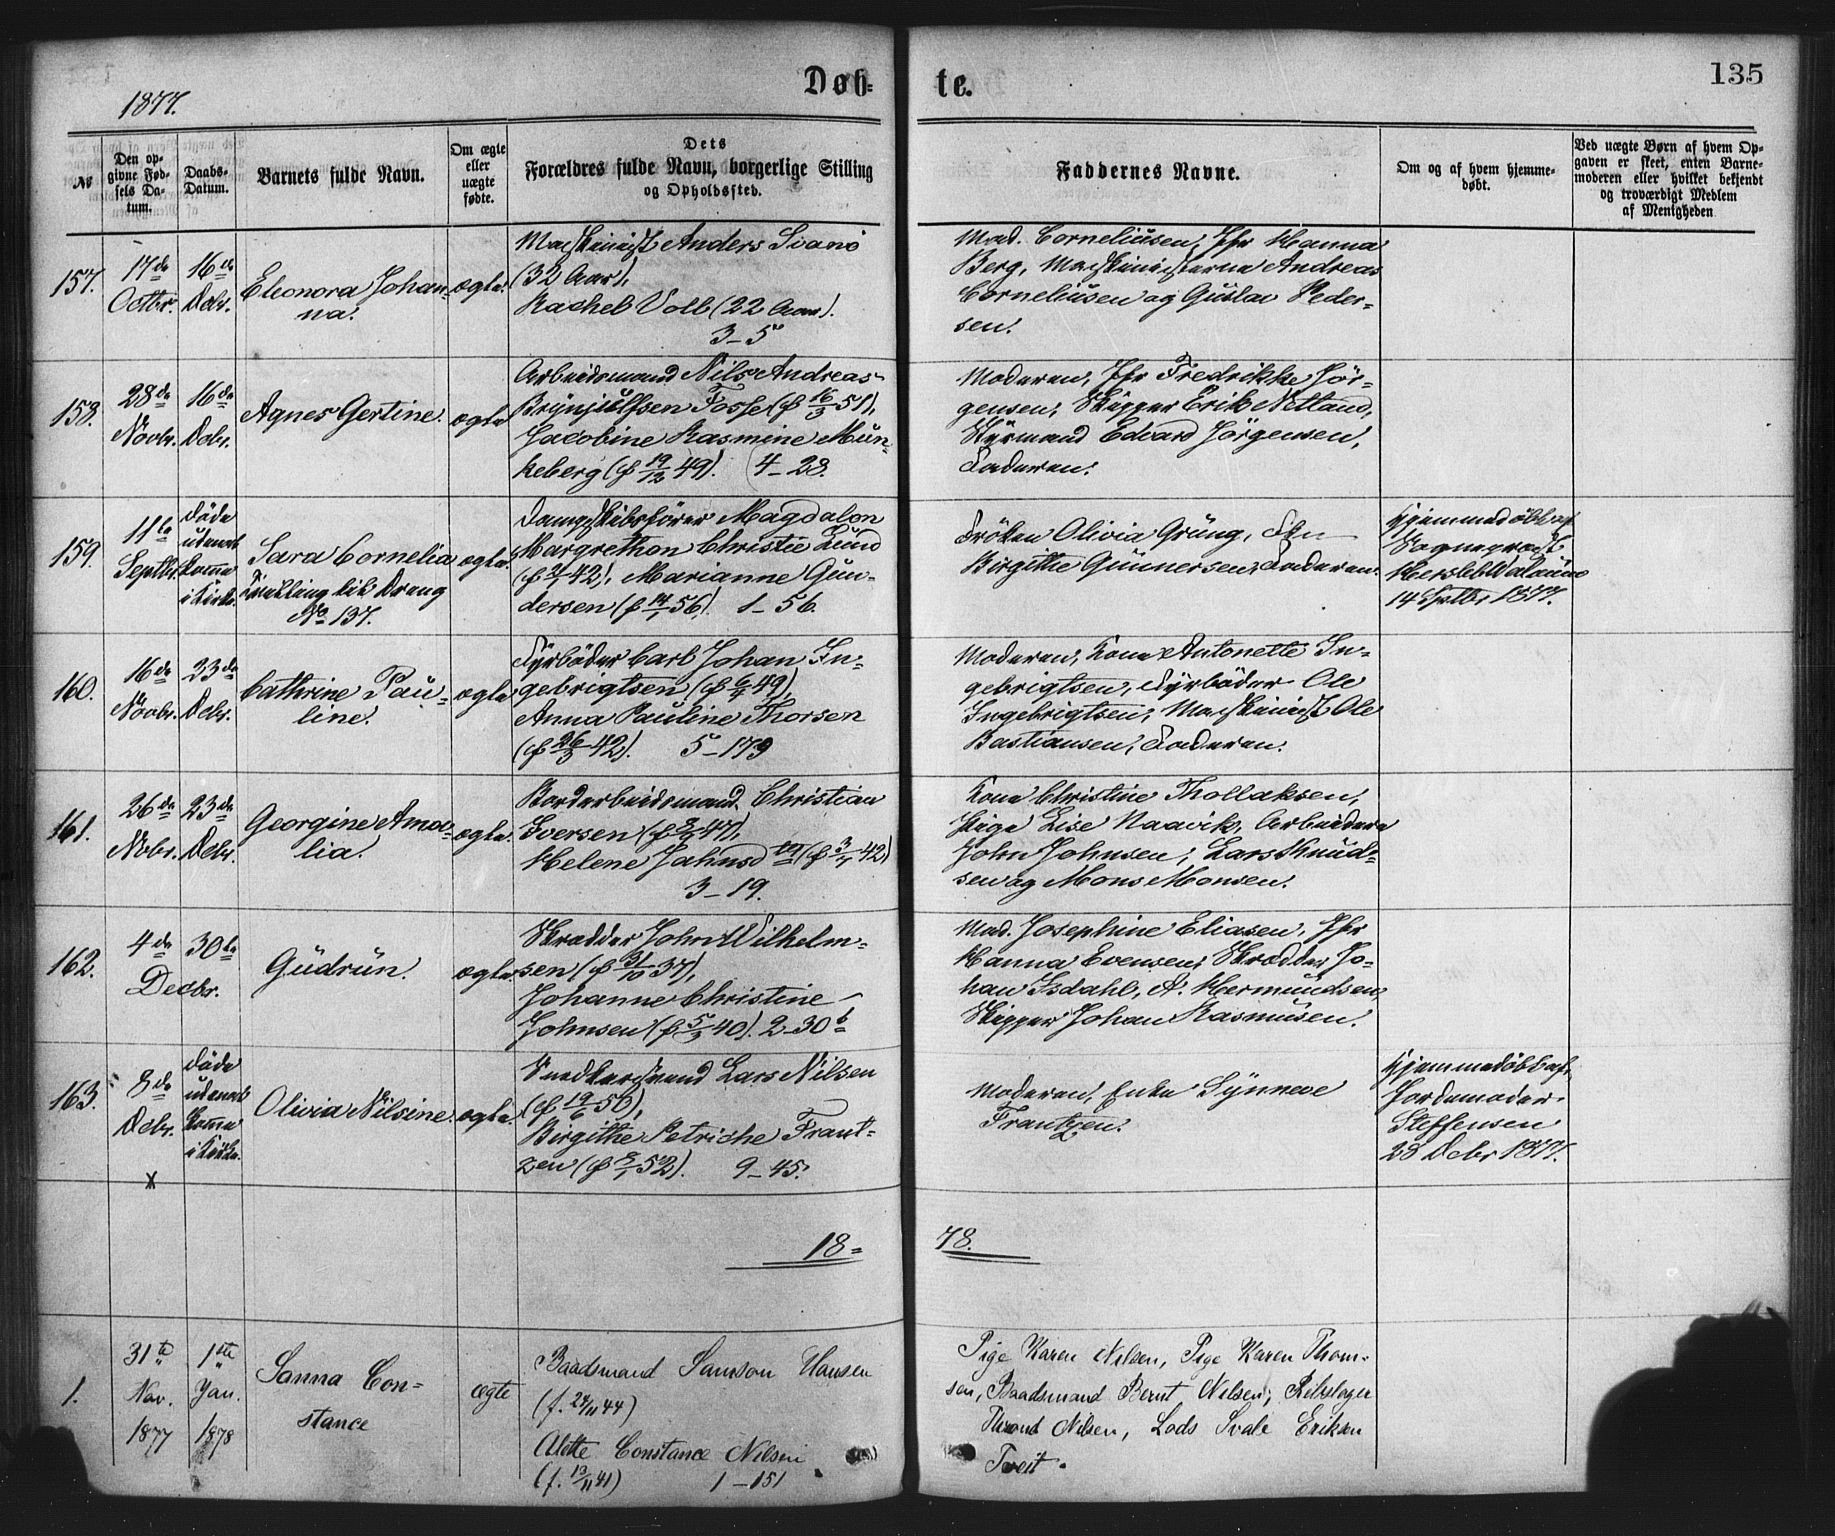 Døb-
te.
135
1877.
No
Den op-
givne Fød-
sels Da-
tum.
Daabs-
Datum.
Barnets fulde Navn.
Om ægte
eller
uægte
fødte.
Dets
Forældres fulde Navn, borgerlige Stilling
og Opholdssted.
Faddernes Navne.
Om og af hvem hjemme-
døbt.
Ved uægte Børn af hvem Op-
gaven er skeet, enten Barne-
moderen eller hvilket bekjendt
og troværdigt Medlem
af Menigheden
157.
17de
Octbr.
16de
Dcbr.
Eleonora Johan-
na.
ægte.
Maskinist Anders Svanö
(32 Aar),
Rachel Voll (22 Aar).
3-5
Mad. Corneliusen, Jfr Hanna
Berg, Maskinisterne Andreas
Corneliusen og Gustav Peder-
sen.
158.
28de
Novbr.
16de
Dcbr.
Agnes Gertine.
ægte
Arbeidsmand Nils Andreas
Brynjulfsen Fosse (f 16/3 51),
Jacobine Rasmine Mun-
keberg (f 19/12 49). 4-28.
Moderen, Jfr Fredrikke Jör-
gensen, Skipper Erik Netland,
Styrmand Edvard Jörgensen,
Faderen.
159.
11te
Septbr.
döde
uden at
komme
i Kirke.
Sara Cornelia
Tvilling till Dreng
No 137.
ægte.
Dampskibsförer Magdalon
Margrethon Christie Lund
42), Marianne Gun-
dersen (f 14/1 56). 1-56.
Fröken Olivia Grung, Fru
Birgithe Gunnersen, Faderen.
Hjemmedöbt af
Sogneprest
14 Septbr 1877.
160.
16de
Novbr.
23de
Dcbr.
Cathrine Pau-
line.
ægte
Fyrböder Carl Johan In-
gebrigtsen 49),
Anna Pauline Thorsen
42). 5-179
Moderen, Kone Antonette In-
gebrigtsen, Fyrböder Ole
Ingebrigtsen, Maskinist Ole
Bastiansen, Faderen.
161.
26de
Nobr.
23de
Dcbr.
Georgine Ama-
lia.
ægte.
Bordarbeidsmand Christian
Iversen 47),
Helene Jahnsdtr 42)
3-19.
Kone Christine Thollaksen,
Pige Lise Naavik, Arbeiderne
John Johnsen, Lars Knud-
sen og Mons Monsen.
162.
4de
Decbr.
30te
Gudrun.
ægte.
Skrædder John Wilhelm-
sen (f 31/10 37),
Johanne Christine
Johnsen (f 5/3 40). 2-30b
Mad. Josephine Eliasen, Jfr
Hanna Evensen, Skrædder Jo-
han Isdahl, A. Hermundsen,
Skipper Johan Rasmusen.
163.
8de
Dcbr.
x
döde
uden at
komme
i Kirke.
Olivia Nilsine.
ægte.
Snedkersvend Lars Nilsen
(f 19/6 50),
Birgithe Petriche Frant-
zen 52). 9-45.
Moderen, Enke Synneve
Frantzen.
Hjemmedöbt af
Jordemoder
Steffensen
28 Dcbr 1877.
18=
78.
1.
31te
Nov.
1877
1ste
Jan.
1878
Sanna Con-
stance
ægte
Baadsmand Samson Hansen
(f. 24/11 44)
Alette Constance Nilsen
(f. 13/11 41) 1-151
Pige Karen Nilsen, Pige Karen Thom-
sen, Baadsmand Bernt Nilsen, Rebslager
Thrond Nilsen, Lods Svale Eriksen
Tveit.